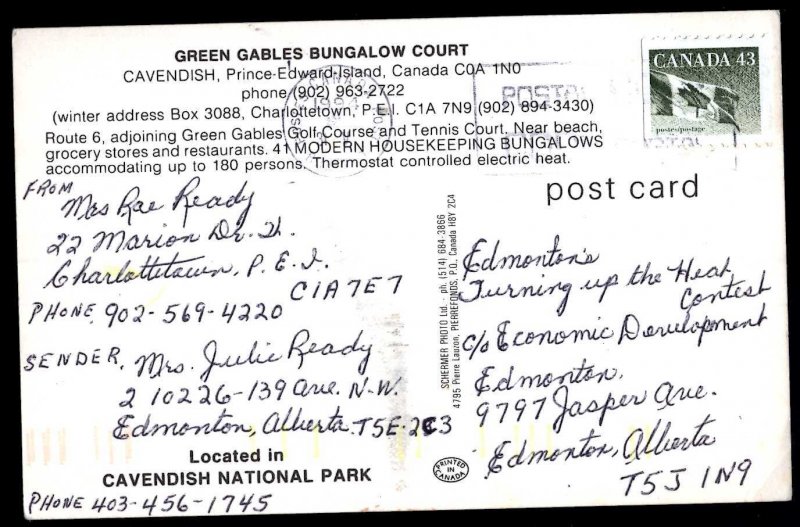 GREEN GABLES BUNGALOW COURT
CAVENDISH, Prince-Edward-Island, Canada C0A 1N0
phone (902) 963-2722
(winter address Box 3088, Charlottetown, P.E.I. C1A 7N9 (902) 894-3430)
Route 6, adjoining Green Gables Golf Course and Tennis Court. Near beach,
grocery stores and restaurants. 41 MODERN HOUSEKEEPING BUNGALOWS
accommodating up to 180 persons. Thermostat controlled electric heat.
CANADA
1994
POSTAL
CANADA 43
postes/postage
post card
FROM
Mrs Rae Ready
22 Marion Dr.
Charlottetown, P.E.I.
C1A7E7
PHONE 902-569-4220
SENDER, Mrs. Julie Ready
2 10226-139 Ave. N.W.
Edmonton, Alberta T5E-2C3
Located in
CAVENDISH NATIONAL PARK
PHONE 403-456-1745
SCHERMER PHOTO Ltd. - ph. (514) 684-3866
4795 Pierre Lauzon, PIERREFONDS, P.Q. Canada H8Y 2C4
PRINTED IN CANADA
Edmonton's
Turning up the Heat
Contest
c/o Economic Development
Edmonton,
9797 Jasper Ave.
Edmonton, Alberta
T5J 1N9